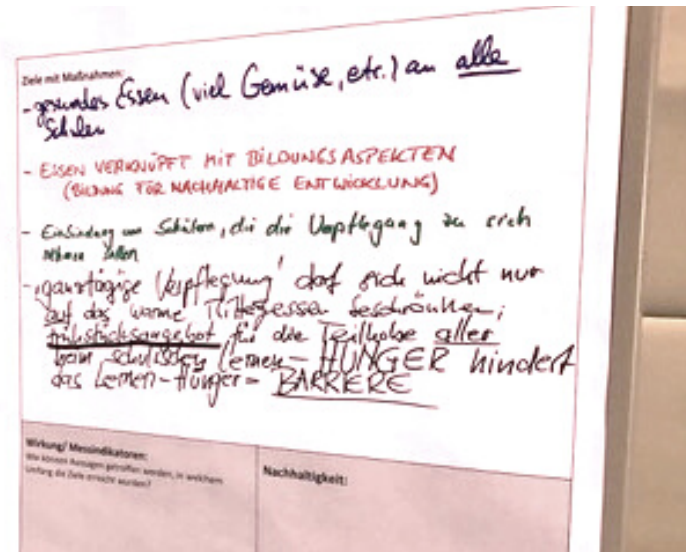 Ziele mit Maßnahmen:
- gesundes Essen (viel Gemüse, etc.) an alle
Schulen
- ESSEN VERKNÜPFT MIT BILDUNGSASPEKTEN
(BILDUNG FÜR NACHHALTIGE ENTWICKLUNG)
- Einbindung von Schülern, die die Verpflegung zu sich
nehmen sollen
- "ganztägige Verpflegung" darf sich nicht nur
auf das warme Mittagessen beschränken;
Frühstücksangebot für die Teilhabe aller
beim schulischen Lernen - HUNGER hindert
das Lernen - Hunger = BARRIERE
Wirkung/ Messindikatoren:
Wie können Aussagen getroffen werden, in welchem
Umfang die Ziele erreicht wurden?
Nachhaltigkeit: